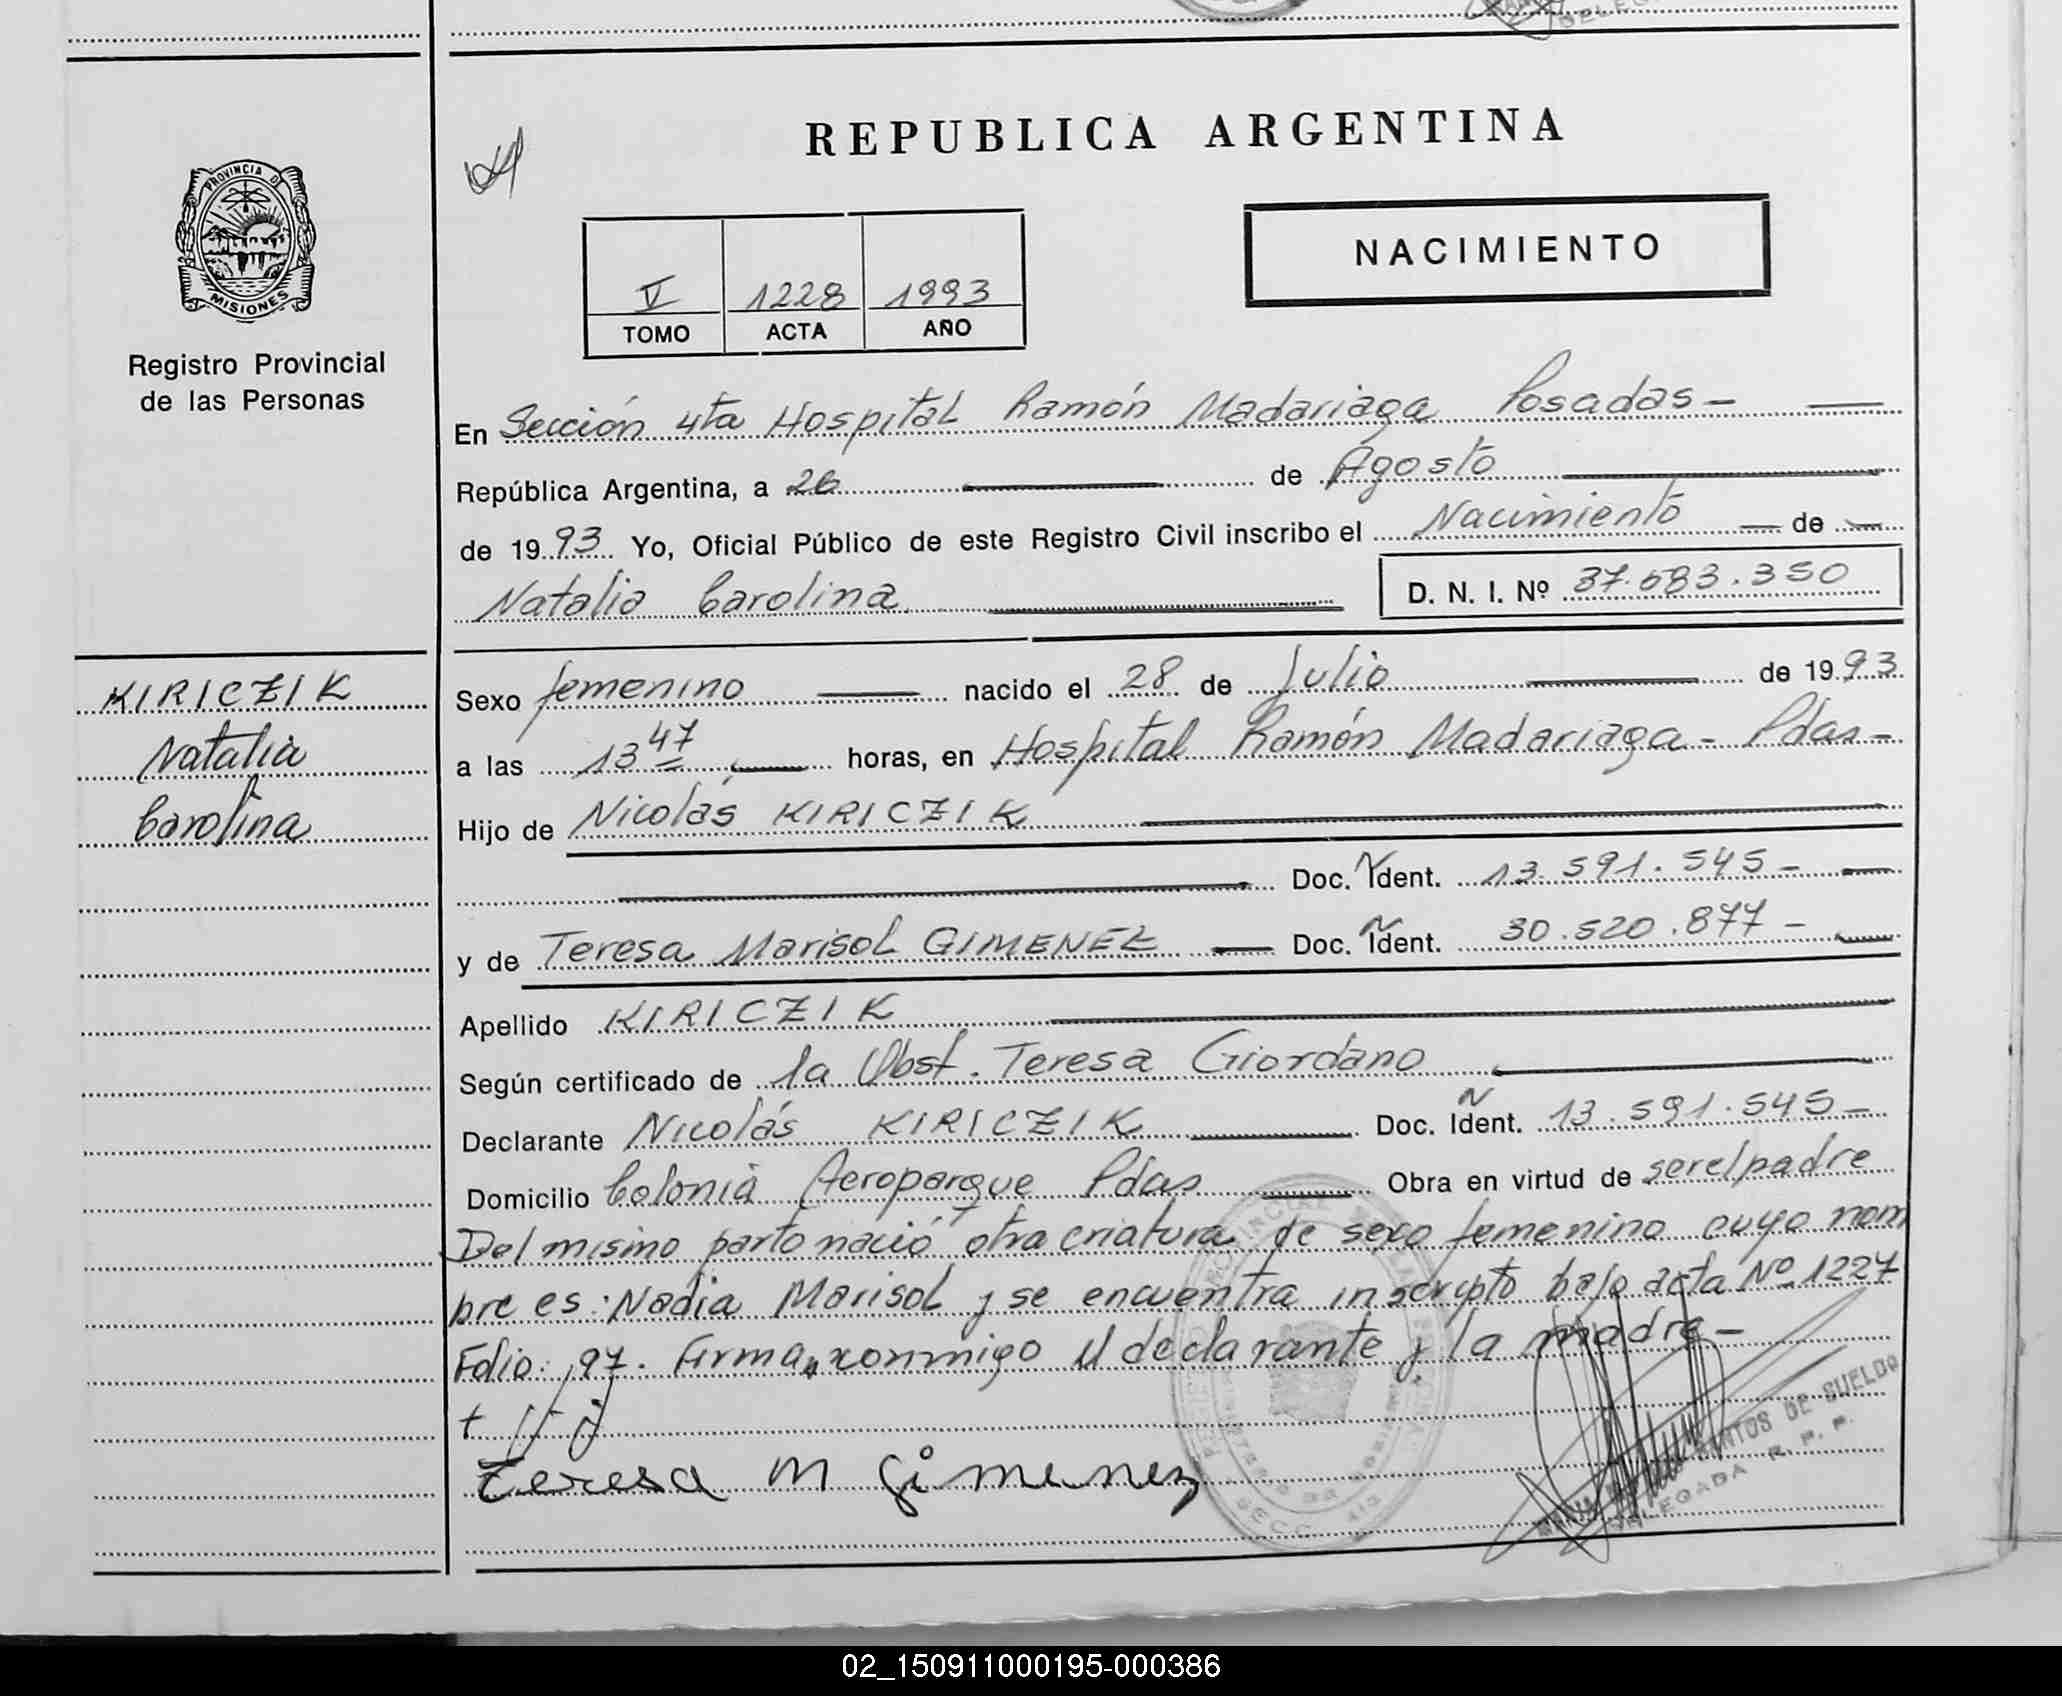 REPUBLICA ARGENTINA
PROVINCIA D
MISIONES
Registro Provincial
de las Personas
NACIMIENTO
V 1228 1993
TOMO ACTA AÑO
En Sección 4ta Hospital Ramón Madariaga Posadas -
República Argentina, a 26 de Agosto
de 1993 Yo, Oficial Público de este Registro Civil inscribo el Nacimiento de
Natalia Carolina
D. N. I. Nº 37.683.350
KIRICZIK
Natalia
Carolina
Sexo femenino nacido el 28 de Julio de 1993
a las 13 47 horas, en Hospital Ramón Madariaga - Pdas -
Hijo de Nicolás KIRICZIK
Doc. Ident. 13.591.545 -
y de Teresa Marisol GIMENEZ Doc. Ident. 30.520.877 -
Apellido KIRICZIK
Según certificado de la Obst. Teresa Giordano
Declarante Nicolás KIRICZIK Doc. Ident. 13.591.545 -
Domicilio Colonia Aeroparque Pdas Obra en virtud de ser el padre
Del mismo parto nació otra criatura de sexo femenino cuyo nom
bre es: Nadia Marisol y se encuentra inscripto bajo acta Nº 1227
Folio: 97. Firman conmigo el declarante y la madre -
Teresa M Gimenez
DE SUELDO
DELEGADA R. P. P.
02_150911000195-000386